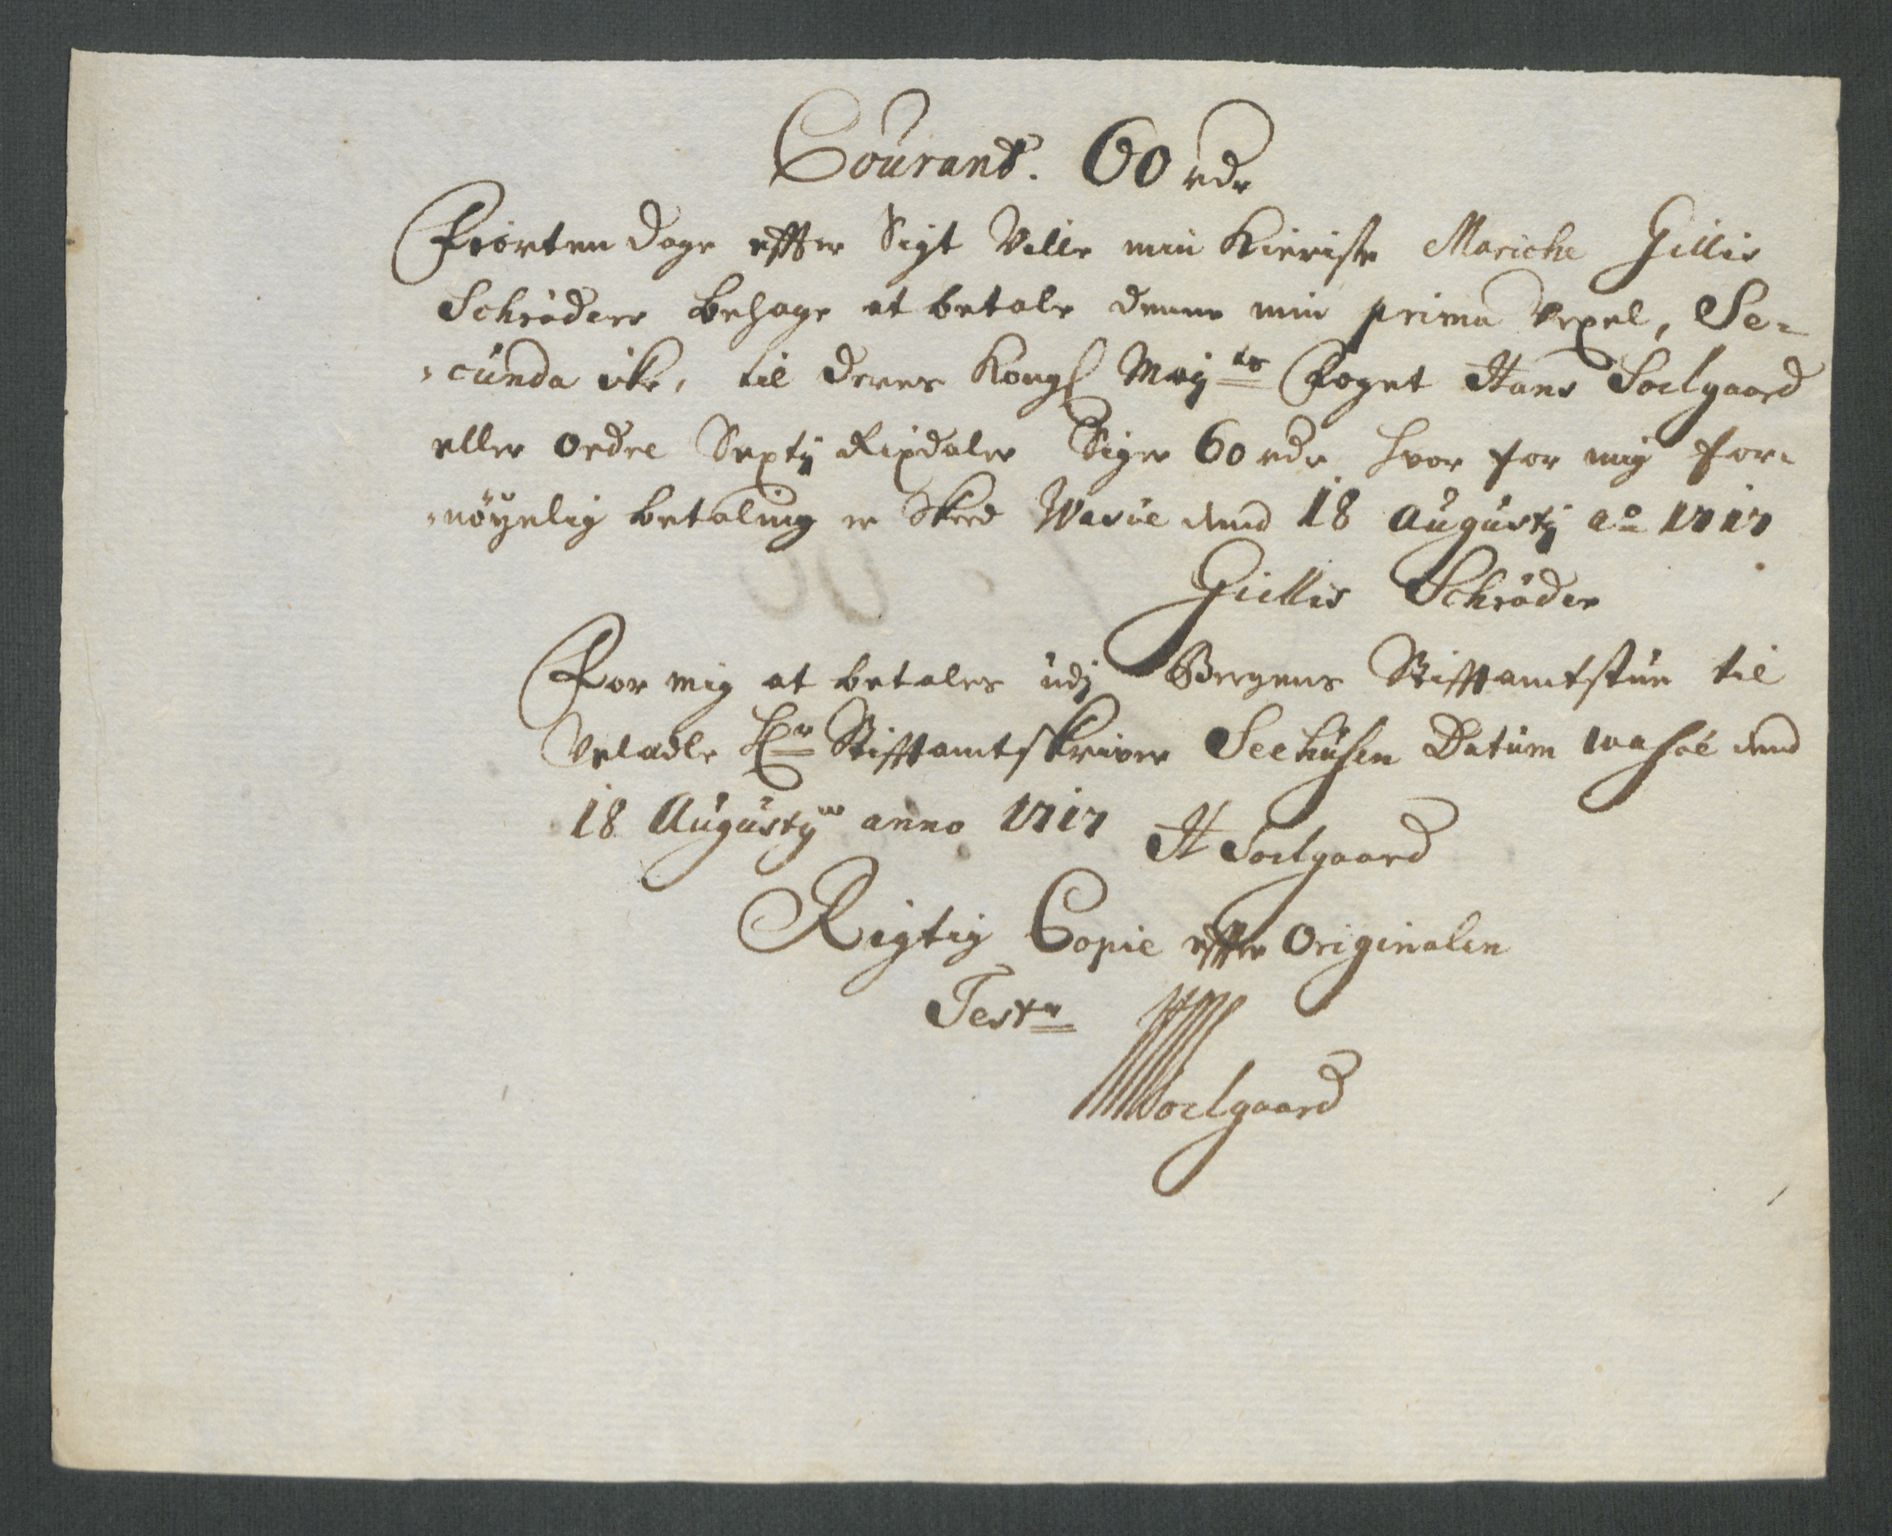 Courant. 60 rdr
Fiorten dage effter Sigt Ville min Kieriste Mariche Gillis
Schröders behage at betale denne min prima Vexel, Se-
cunda ike, til deres Kongl Mayts Foget Hans Soelgaard
eller ordre Sexty Rixdaler Siger 60 rdr hvor for mig for-
nöyelig betaling er skeed Wasöe dend 18 Augusty ao 1717
Gillis Schröder
For mig at betales udj Bergens Stifftamtstue til
Veladle Hr Stifftamtskriver Seehusen Datum wasöe dend
18 Augusty anno 1717 H Soelgaard
Rigtig Copie effter Originalen
Testr
HSoelgaard